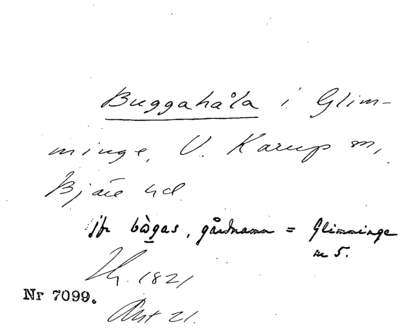 Buggahåla i Glim-
minge, V. Karup sn,
Bjäre hd
jfr bågas, gårdnamn = Glimminge
nr 5.
1821
Nr 7099.
21.